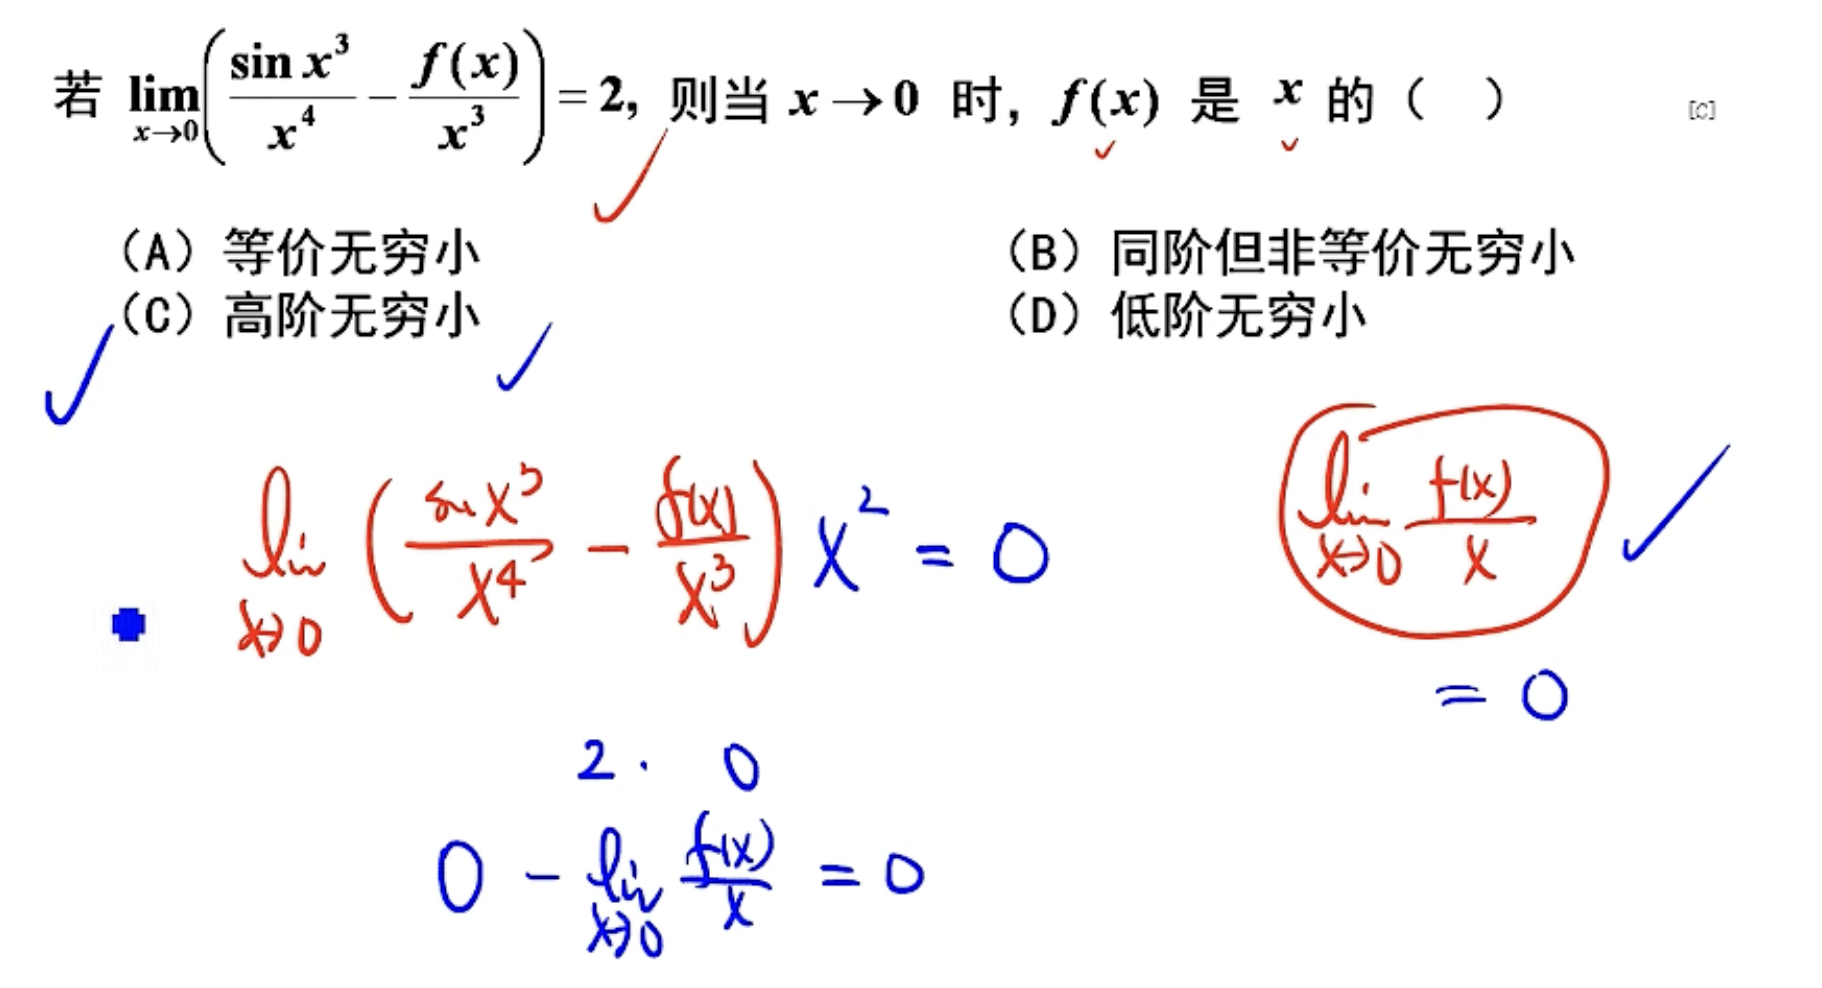 若 lim_{x→0} ( sin x³ / x⁴ − f(x) / x³ ) = 2, 则当 x→0 时, f(x) 是 x 的（ ） [C]
（A）等价无穷小 （B）同阶但非等价无穷小
（C）高阶无穷小 （D）低阶无穷小
lim_{x→0} ( sin x³ / x⁴ − f(x) / x³ ) x² = 0
lim_{x→0} f(x) / x
= 0
2 · 0
0 − lim_{x→0} f(x) / x = 0